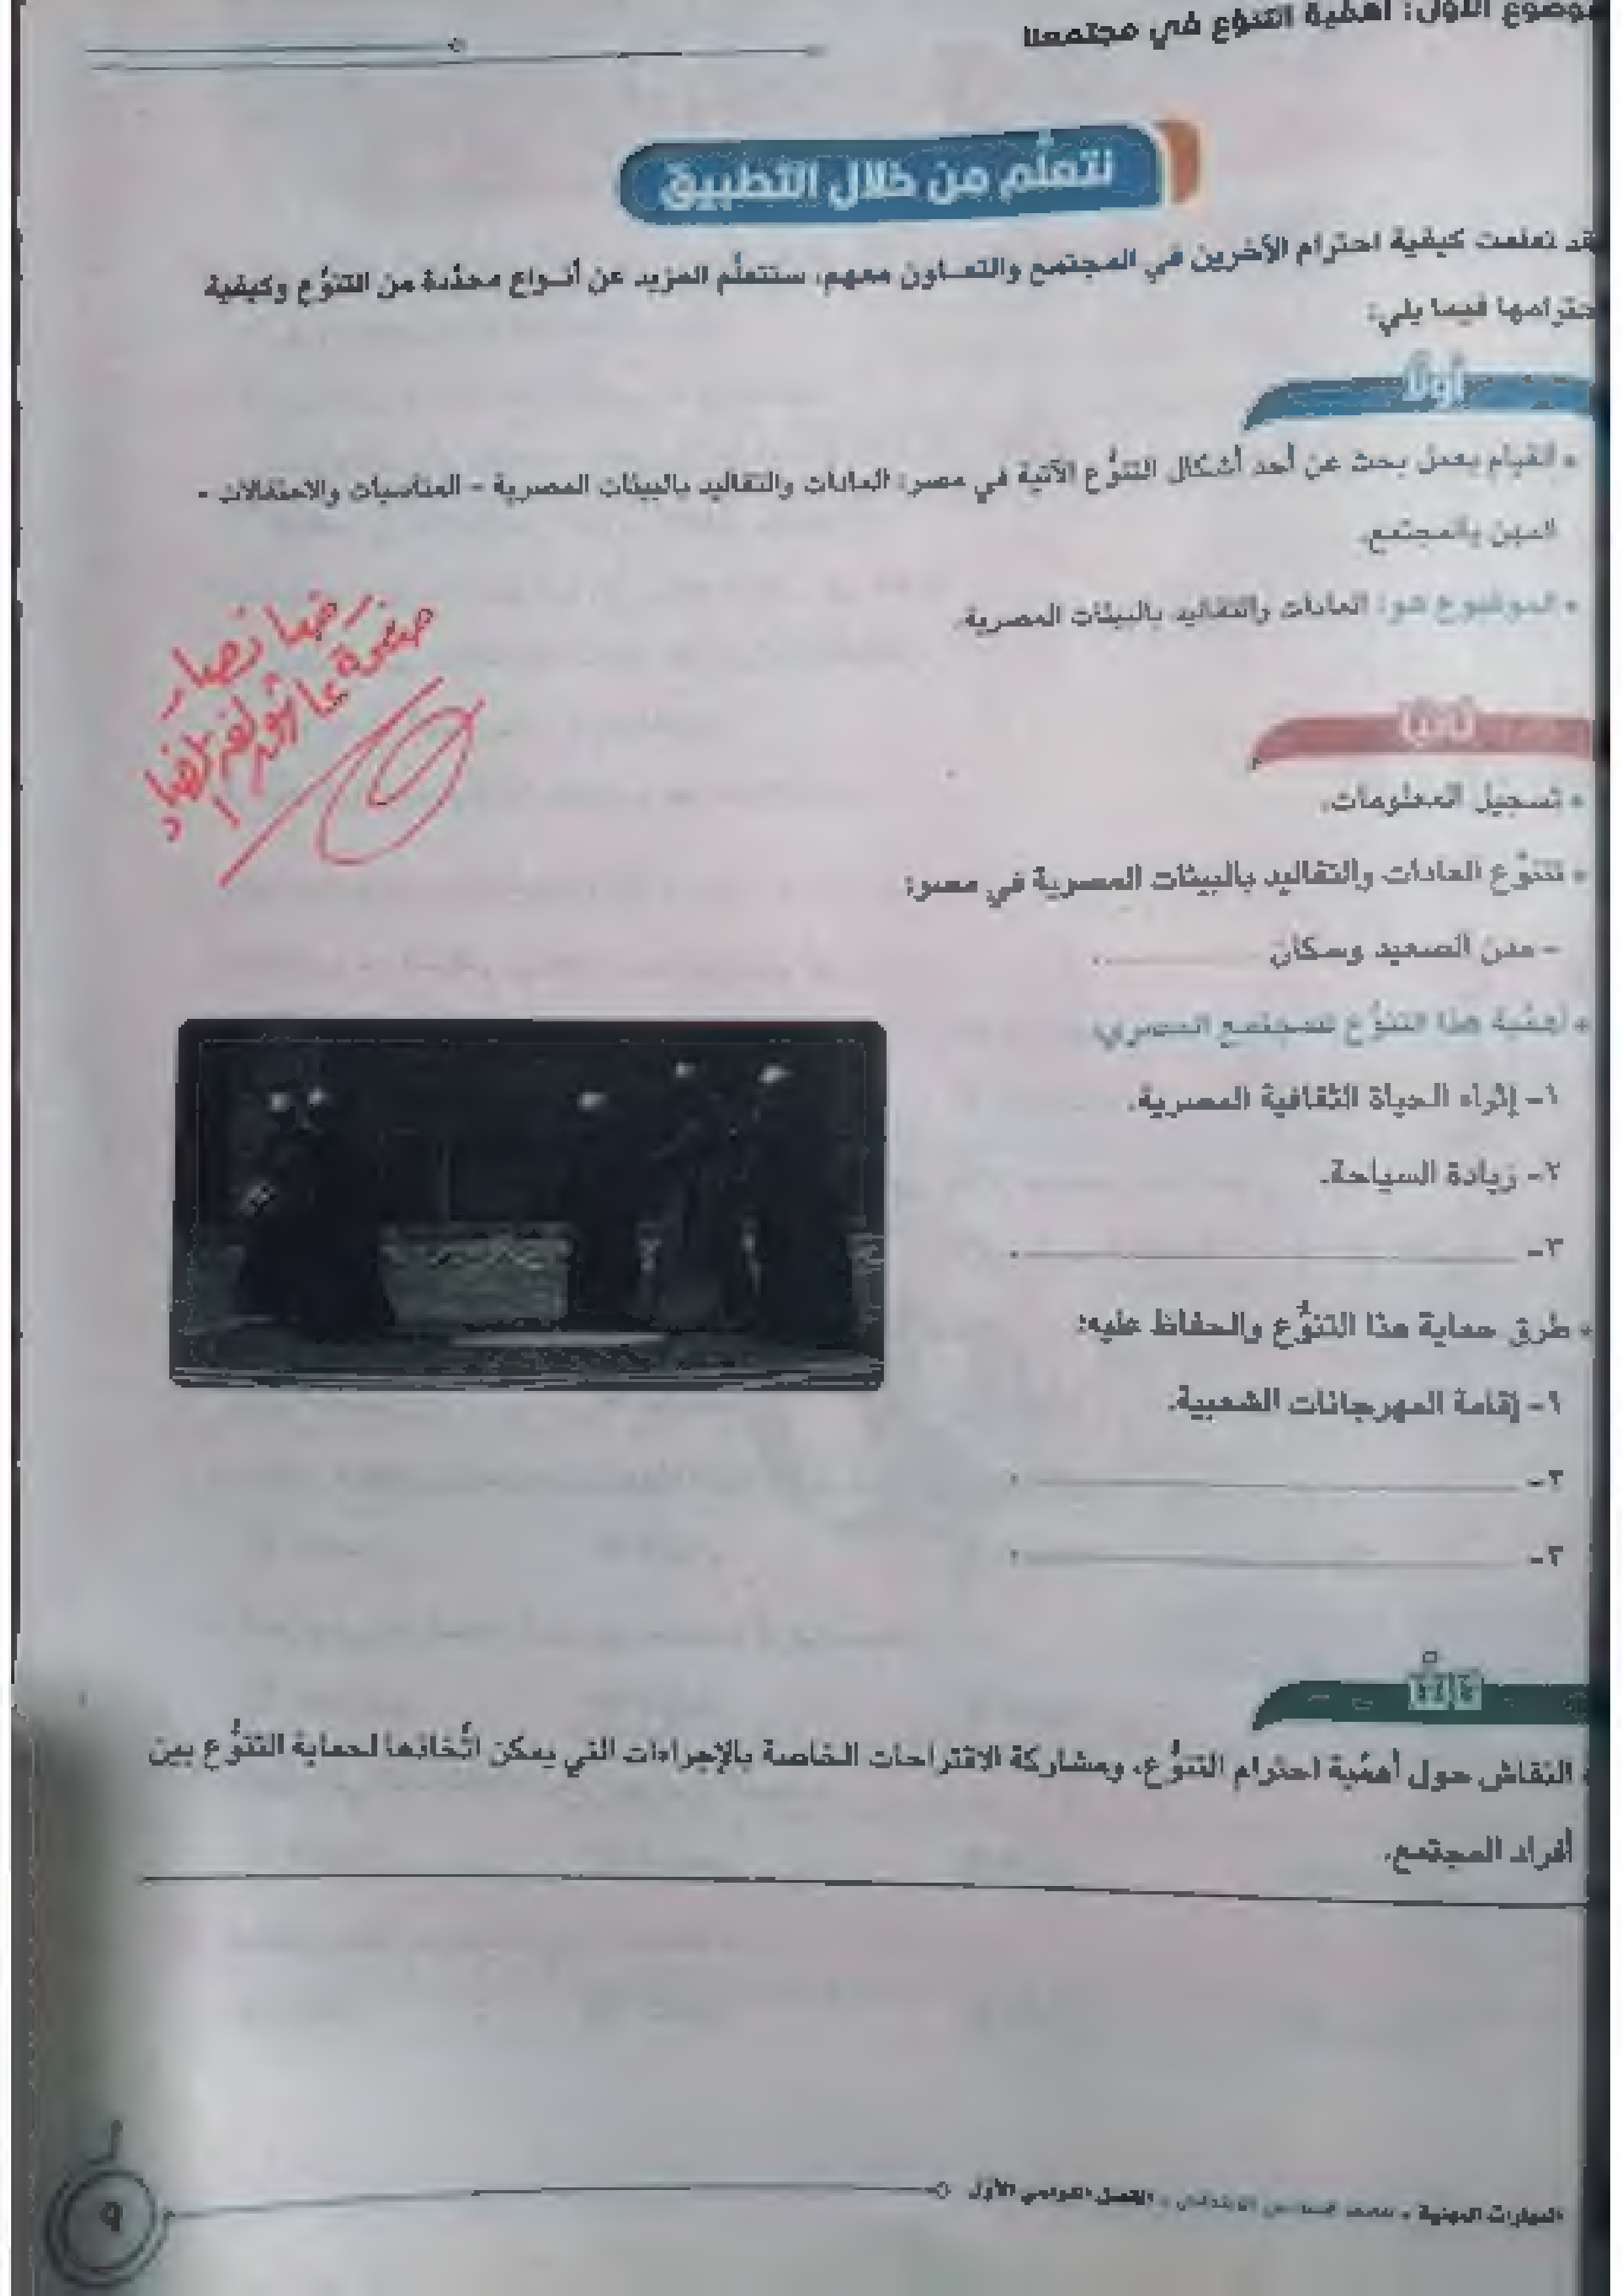 موضوع الأول: أهمية التنوع في مجتمعنا
نتعلَّم من خلال التطبيق
قد تعلمت كيفية احترام الآخرين في المجتمع والتعـاون معهم، ستتعلَّم المزيد عن أنـواع محدَّدة من التنوُّع وكيفية
حترامها فيما يلي:
أولًا
• القيام بعمل بحث عن أحد أشكال التنوُّع الآتية في مصر: العادات والتقاليد بالبيئات المصرية - المناسبات والاحتفالات -
الدين بالمجتمع.
• الموضوع هو: العادات والتقاليد بالبيئات المصرية.
ثانيًا
• تسجيل المعلومات.
• تتنوَّع العادات والتقاليد بالبيئات المصرية في مصر:
- مدن الصعيد وسكان .
• أهمِّية هذا التنوُّع للمجتمع المصري:
١- إثراء الحياة الثقافية المصرية.
٢- زيادة السياحة.
٣- .
• طرق حماية هذا التنوُّع والحفاظ عليه:
١- إقامة المهرجانات الشعبية.
٢- .
٣- .
ثالثًا
• النقاش حول أهمِّية احترام التنوُّع، ومشاركة الاقتراحات الخاصة بالإجراءات التي يمكن اتِّخاذها لحماية التنوُّع بين
أفراد المجتمع.
المهارات المهنية • للصف السادس الابتدائي • الفصل الدراسي الأول
٩